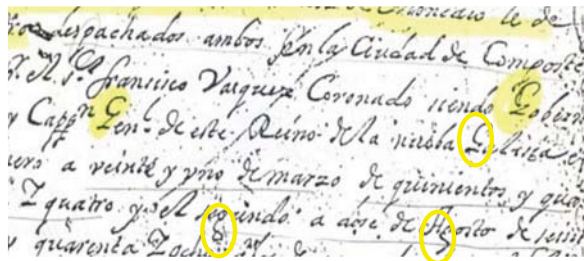 Coronado le de
despachados ambos en la Ciudad de Composte
francisco Vasquez Coronado siendo Gobern
y Cappn Genl. de este Reino de la nueba Galizia e
ero a veinte y vno de marzo de quinientos y quar
Z quatro y el segundo a dose de Agosto de
y quarenta Z ocho